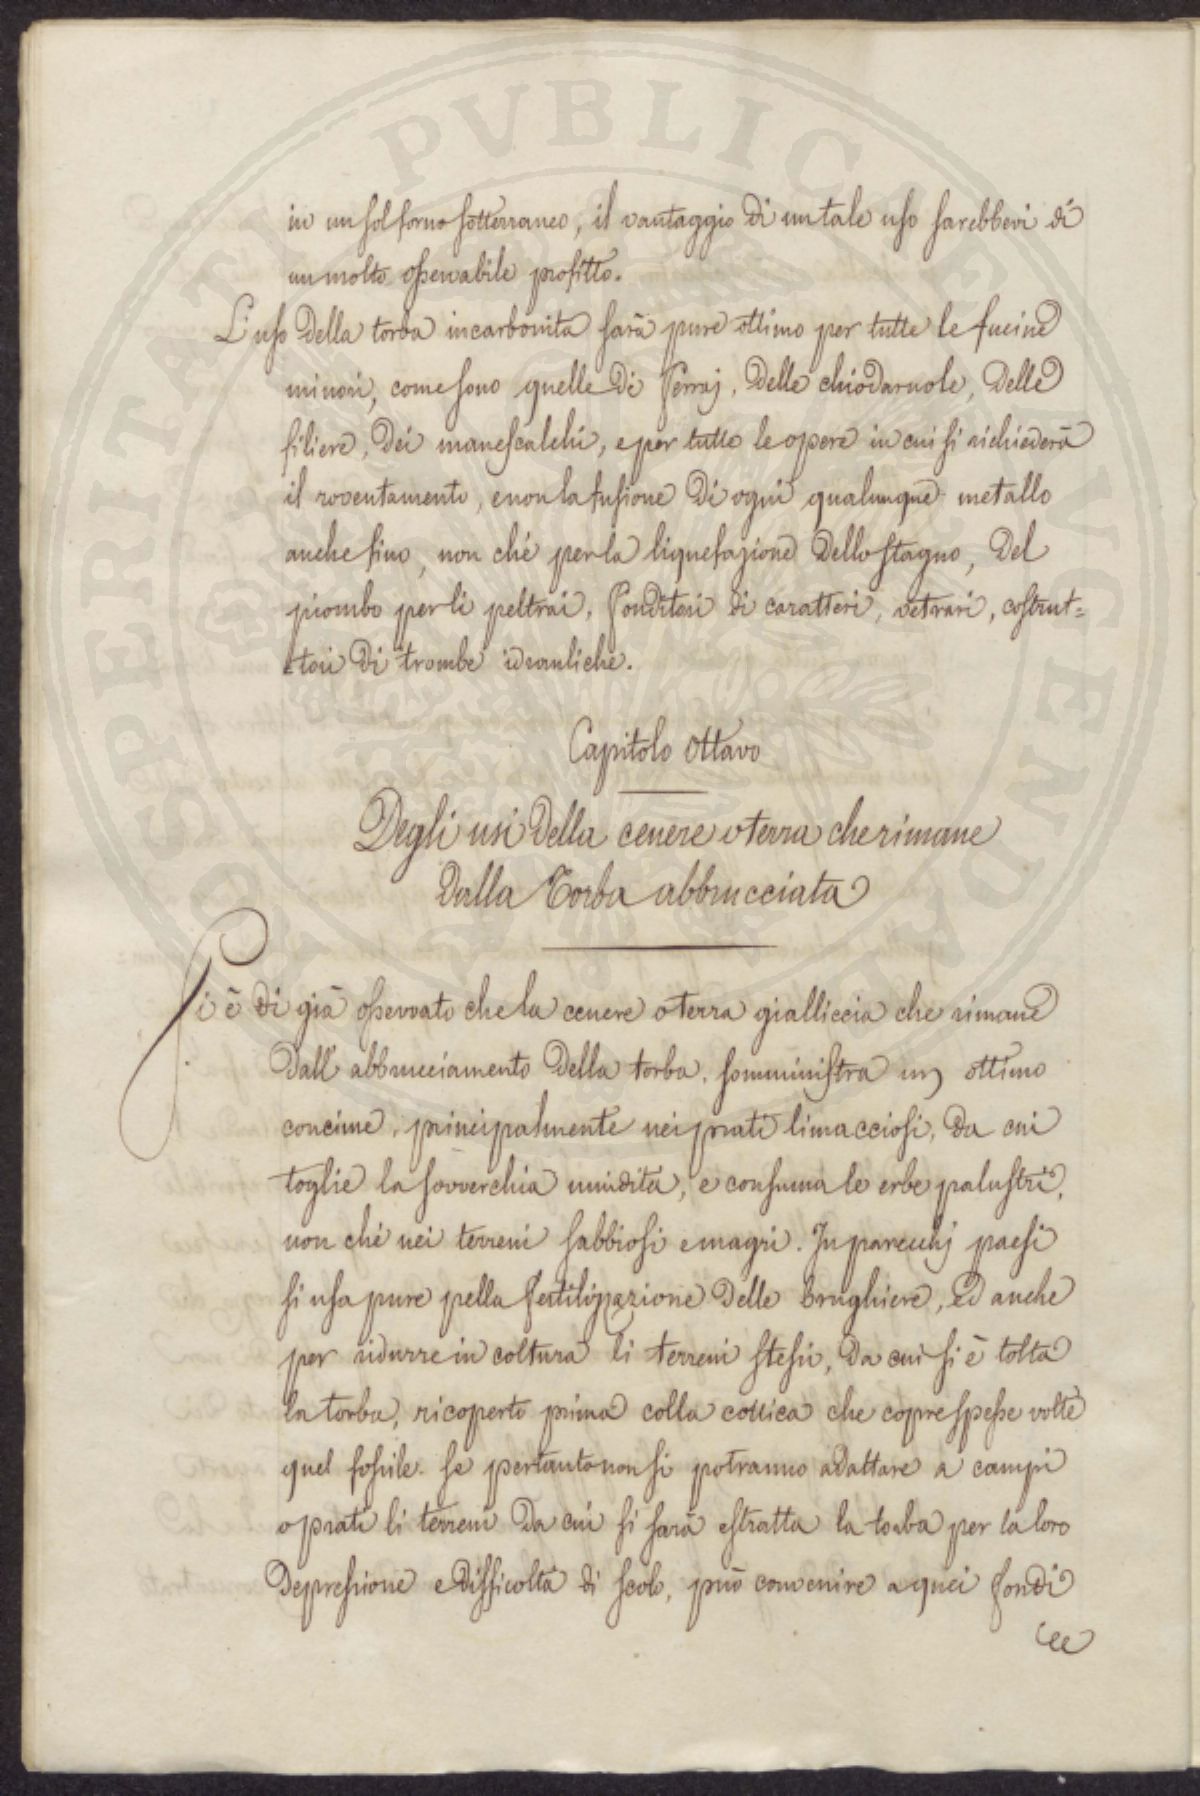 PROSPERITATI PUBLICAE AUGENDAE
in un sol forno sotterraneo, il vantaggio di un tale uso sarebbevi di
un molto osservabile profitto.
L'uso della torba incarbonita sarà pure ottimo per tutte le fucine
minori, come sono quelle di Ferraj, delle chiodaruole, delle
filiere, dei manescalchi, e per tutte le opere in cui si richiederà
il roventamento, e non la fusione di ogni qualunque metallo
anche fino, non chè per la liquefazione dello stagno, del
piombo per li peltrai, Fonditori di caratteri, vetrari, costrut=
=tori di trombe idrauliche.
Capitolo Ottavo
Degli usi della cenere o terra che rimane
dalla Torba abbrucciata
Si è di già osservato che la cenere o terra gialliccia che rimane
dall'abbrucciamento della torba, somministra un ottimo
concime, principalmente nei prati limacciosi, da cui
toglie la sovverchia umidità, e consuma le erbe palustri,
non chè nei terreni sabbiosi e magri. In parecchj paesi
si usa pure pella fertilizzazione delle brughiere, ed anche
per ridurre in coltura li terreni stessi, da cui si è tolta
la torba, ricoperto prima colla cotica che copre spesse volte
quel fossile. Se pertanto non si potranno adattare a campi
o prati li terreni da cui si sarà estratta la torba per la loro
depressione e difficoltà di scolo, può convenire a quei fondi